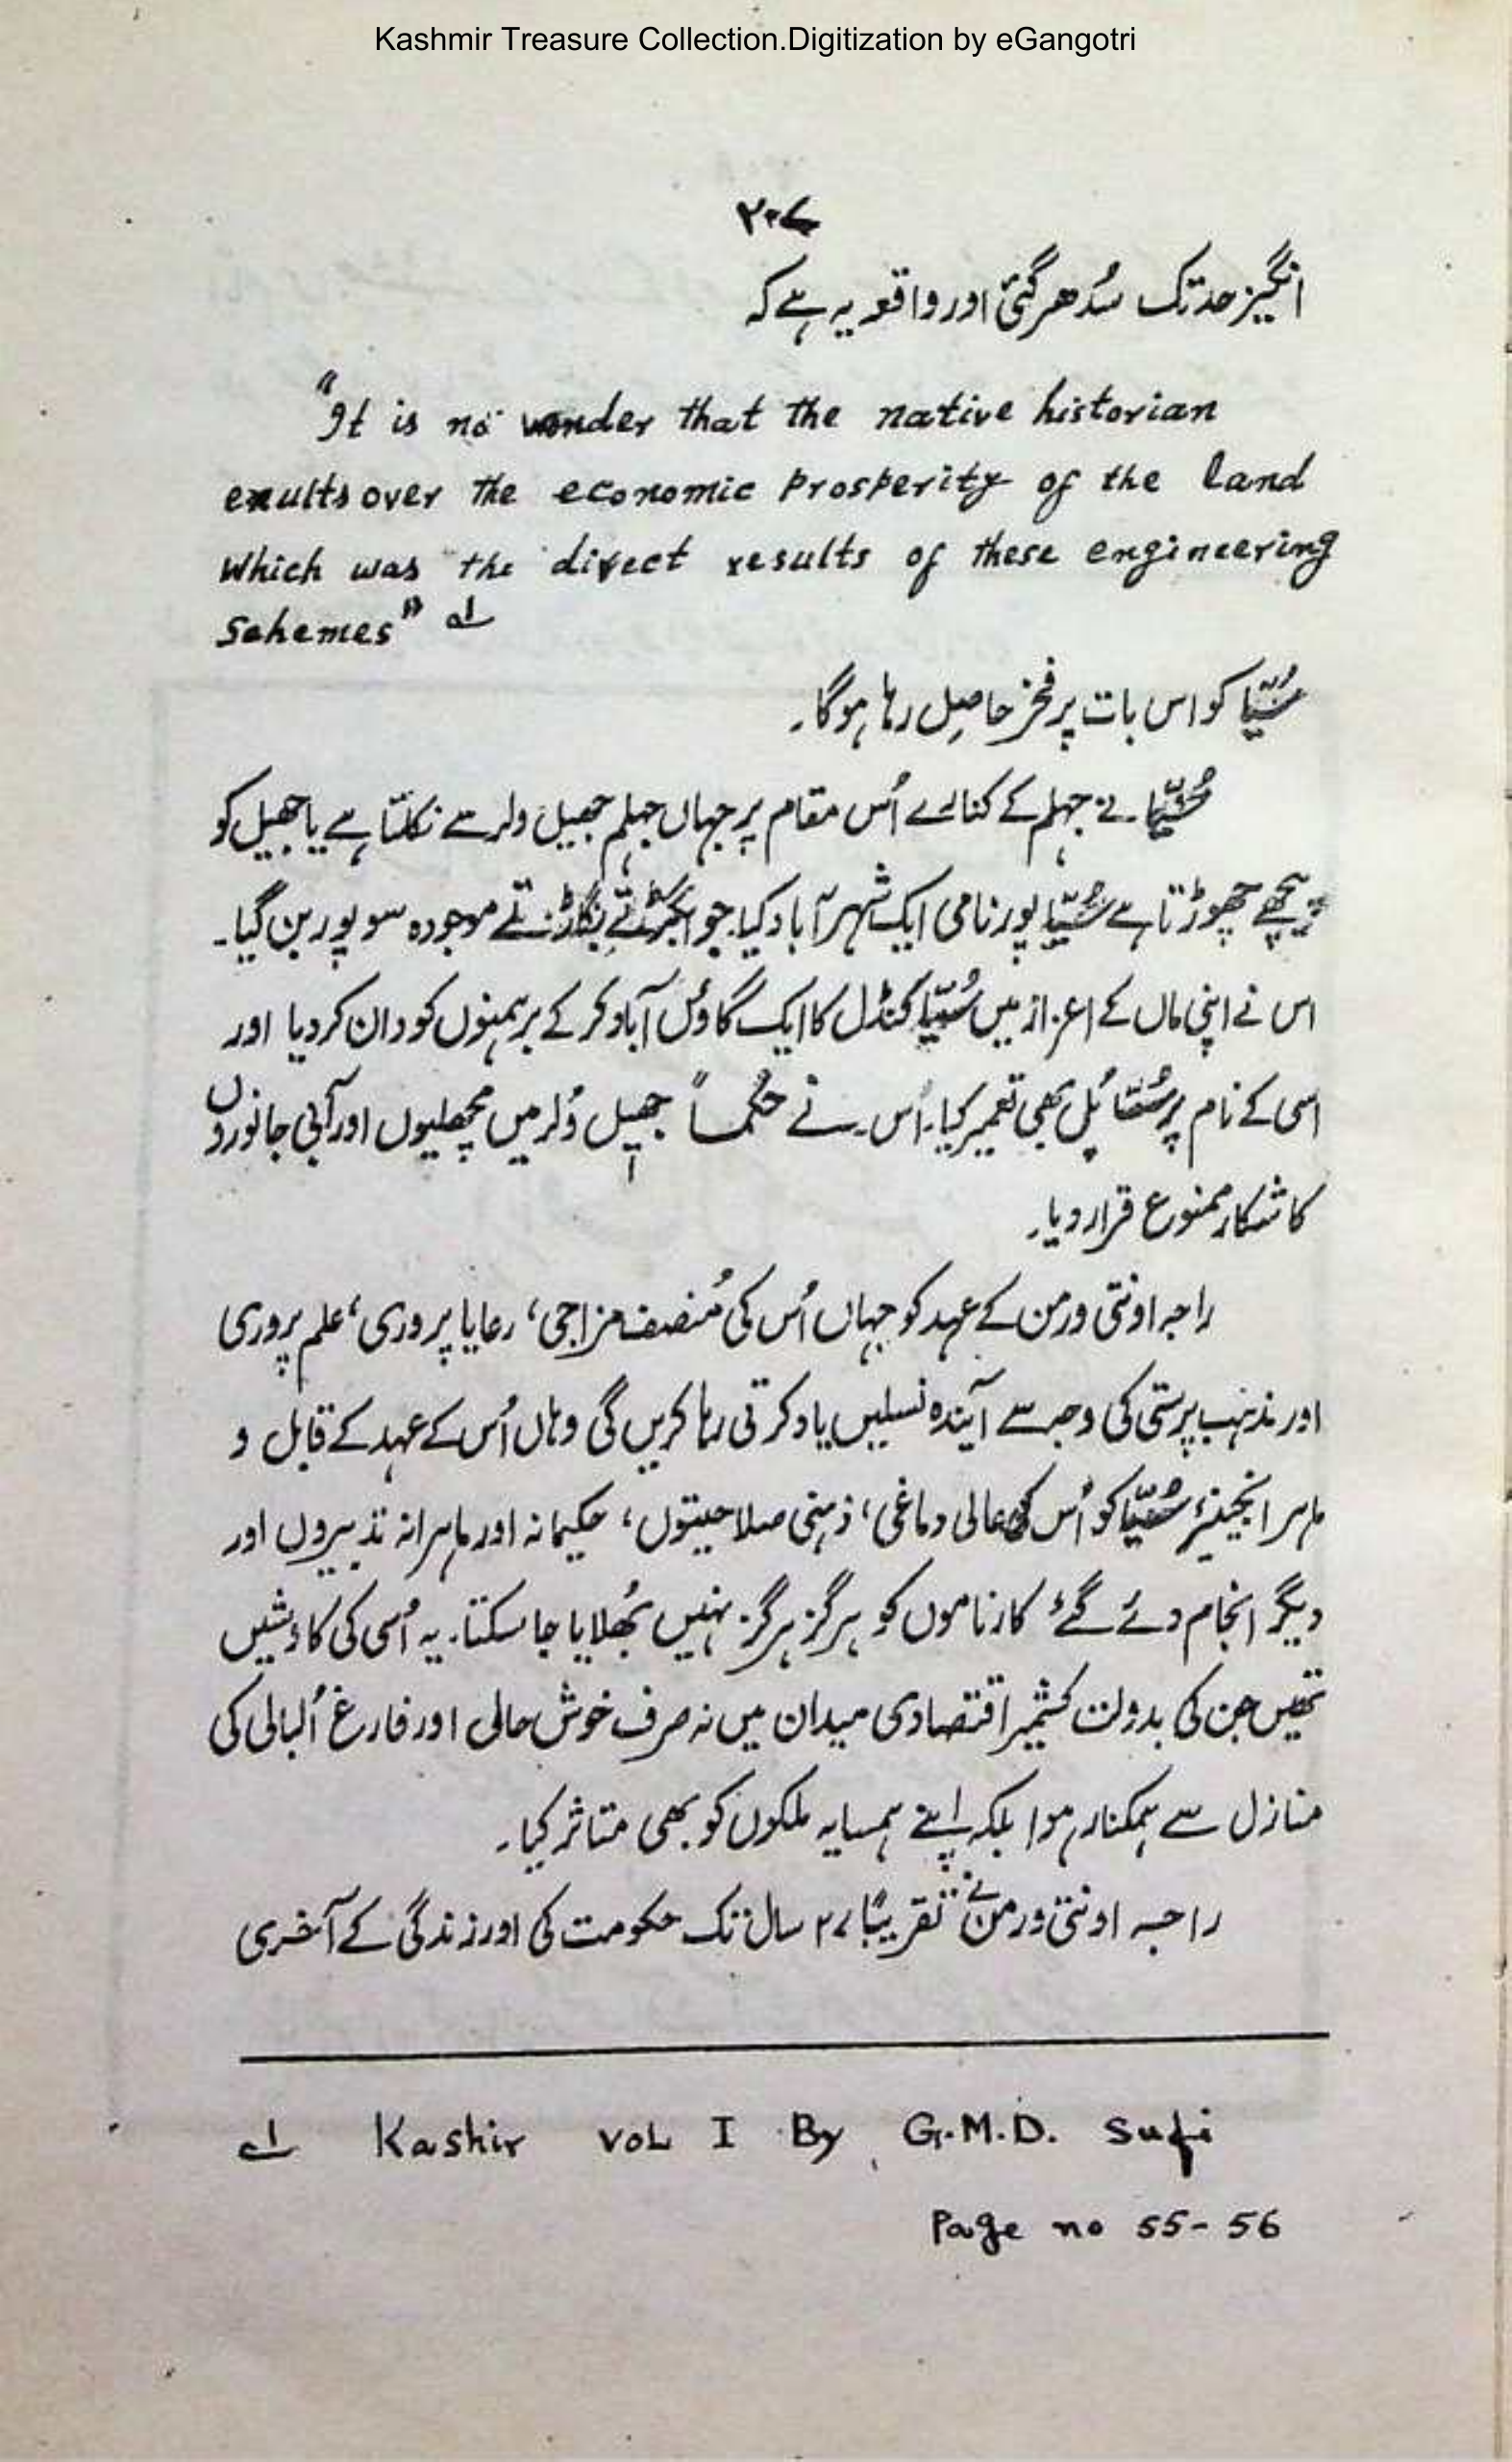 Kashmir Treasure Collection.Digitization by eGangotri
۲۰۷
انگیز حد تک سُدھر گئی اور واقعہ یہ ہے کہ
"It is no wonder that the native historian
exults over the economic prosperity of the land
which was the direct results of these engineering
Schemes" ؎۱
سُیّیا کو اس بات پر فخر حاصِل رہا ہوگا۔
سُیّیا نے جہلم کے کنارے اُس مقام پر جہاں جہلم جھیل ولر سے نکلتا ہے یا جھیل کو
پیچھے چھوڑتا ہے سُیّیا پور نامی ایک شہر آباد کیا۔ جو بگڑتے بگڑتے موجودہ سوپور بن گیا۔
اس نے اپنی ماں کے اعزاز میں سُیّیا کنڈل کا ایک گاؤں آباد کر کے برہمنوں کو دان کر دیا اور
اسی کے نام پر پُل بھی تعمیر کیا۔ اُس نے حُکماً جھیل وُلر میں مچھلیوں اور آبی جانوروں
کا شکار ممنوع قرار دیا۔
راجہ اونتی ورمن کے عہد کو جہاں اُس کی مُنصف مزاجی، رعایا پروری، علم پروری
اور مذہب پرستی کی وجہ سے آیندہ نسلیں یاد کرتی رہا کریں گی وہاں اُس کے عہد کے قابل و
ماہر انجینئر سُیّیا کو اُس کی عالی دماغی، ذہنی صلاحیتوں، حکیمانہ اور ماہرانہ تدبیروں اور
دیگر انجام دئے گئے کارناموں کو ہرگز ہرگز نہیں بھُلایا جا سکتا۔ یہ اُسی کی کاوشیں
تھیں جن کی بدولت کشمیر اقتصادی میدان میں نہ صرف خوش حالی اور فارغ اُلبالی کی
منازل سے ہمکنار ہوا بلکہ اپنے ہمسایہ ملکوں کو بھی متاثر کیا۔
راجہ اونتی ورمن نے تقریبًا ۲۷ سال تک حکومت کی اور زندگی کے آخری
؎۱ Kashir Vol I By G.M.D. Sufi
Page no 55-56